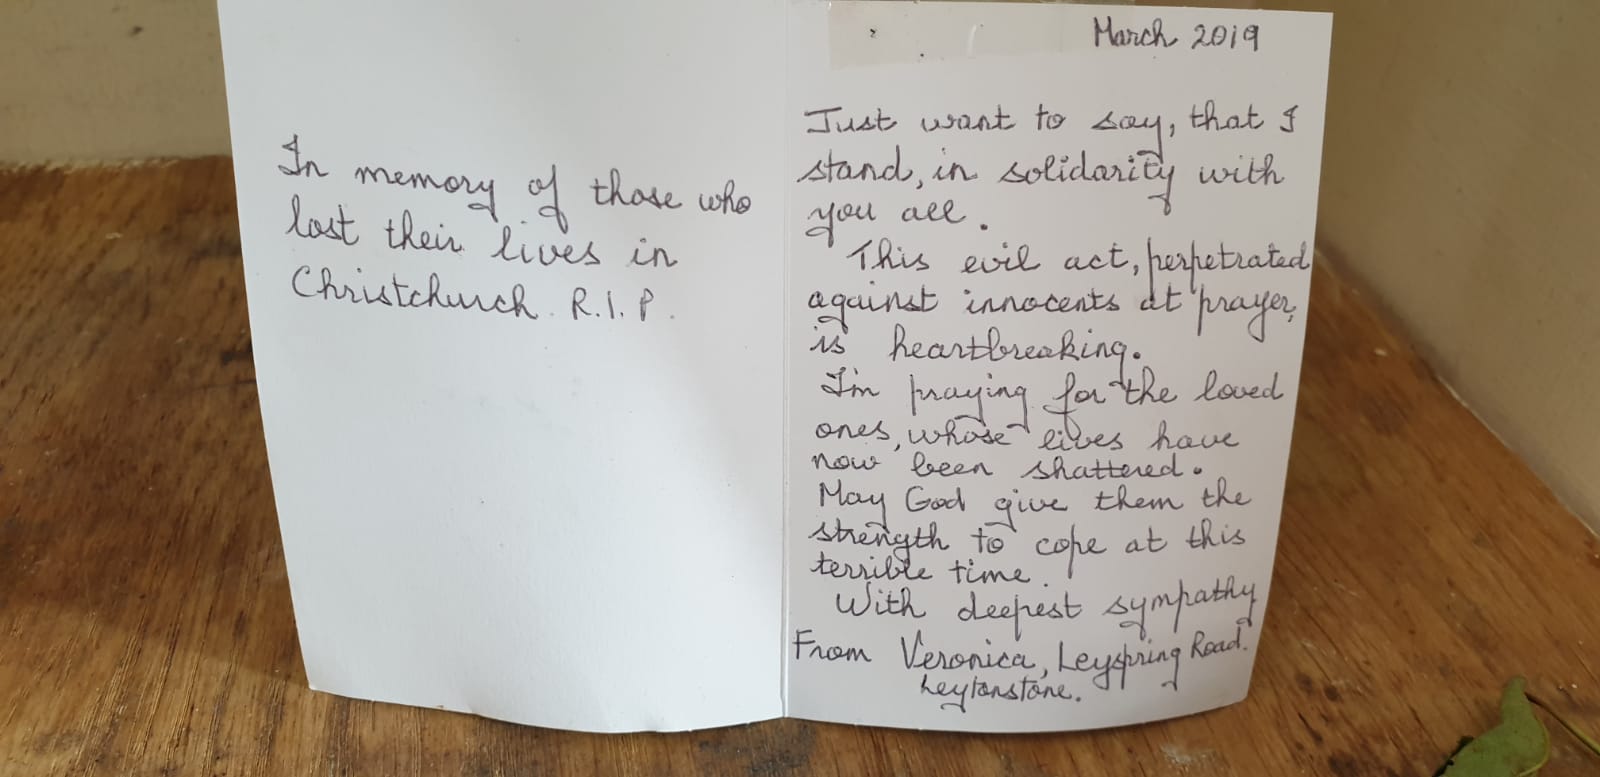 In memory of those who
lost their lives in
Christchurch. R.I.P.
March 2019
Just want to say, that I
stand, in solidarity with
you all.
This evil act, perpetrated
against innocents at prayer,
is heartbreaking.
I'm praying for the loved
ones, whose lives have
now been shattered.
May God give them the
strength to cope at this
terrible time.
With deepest sympathy
From Veronica, Leyspring Road.
Leytonstone.